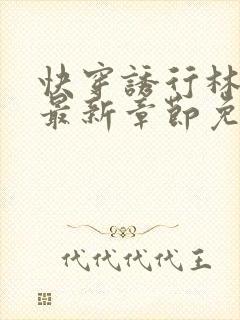 快穿誘行林
最新章節免
代代代代王